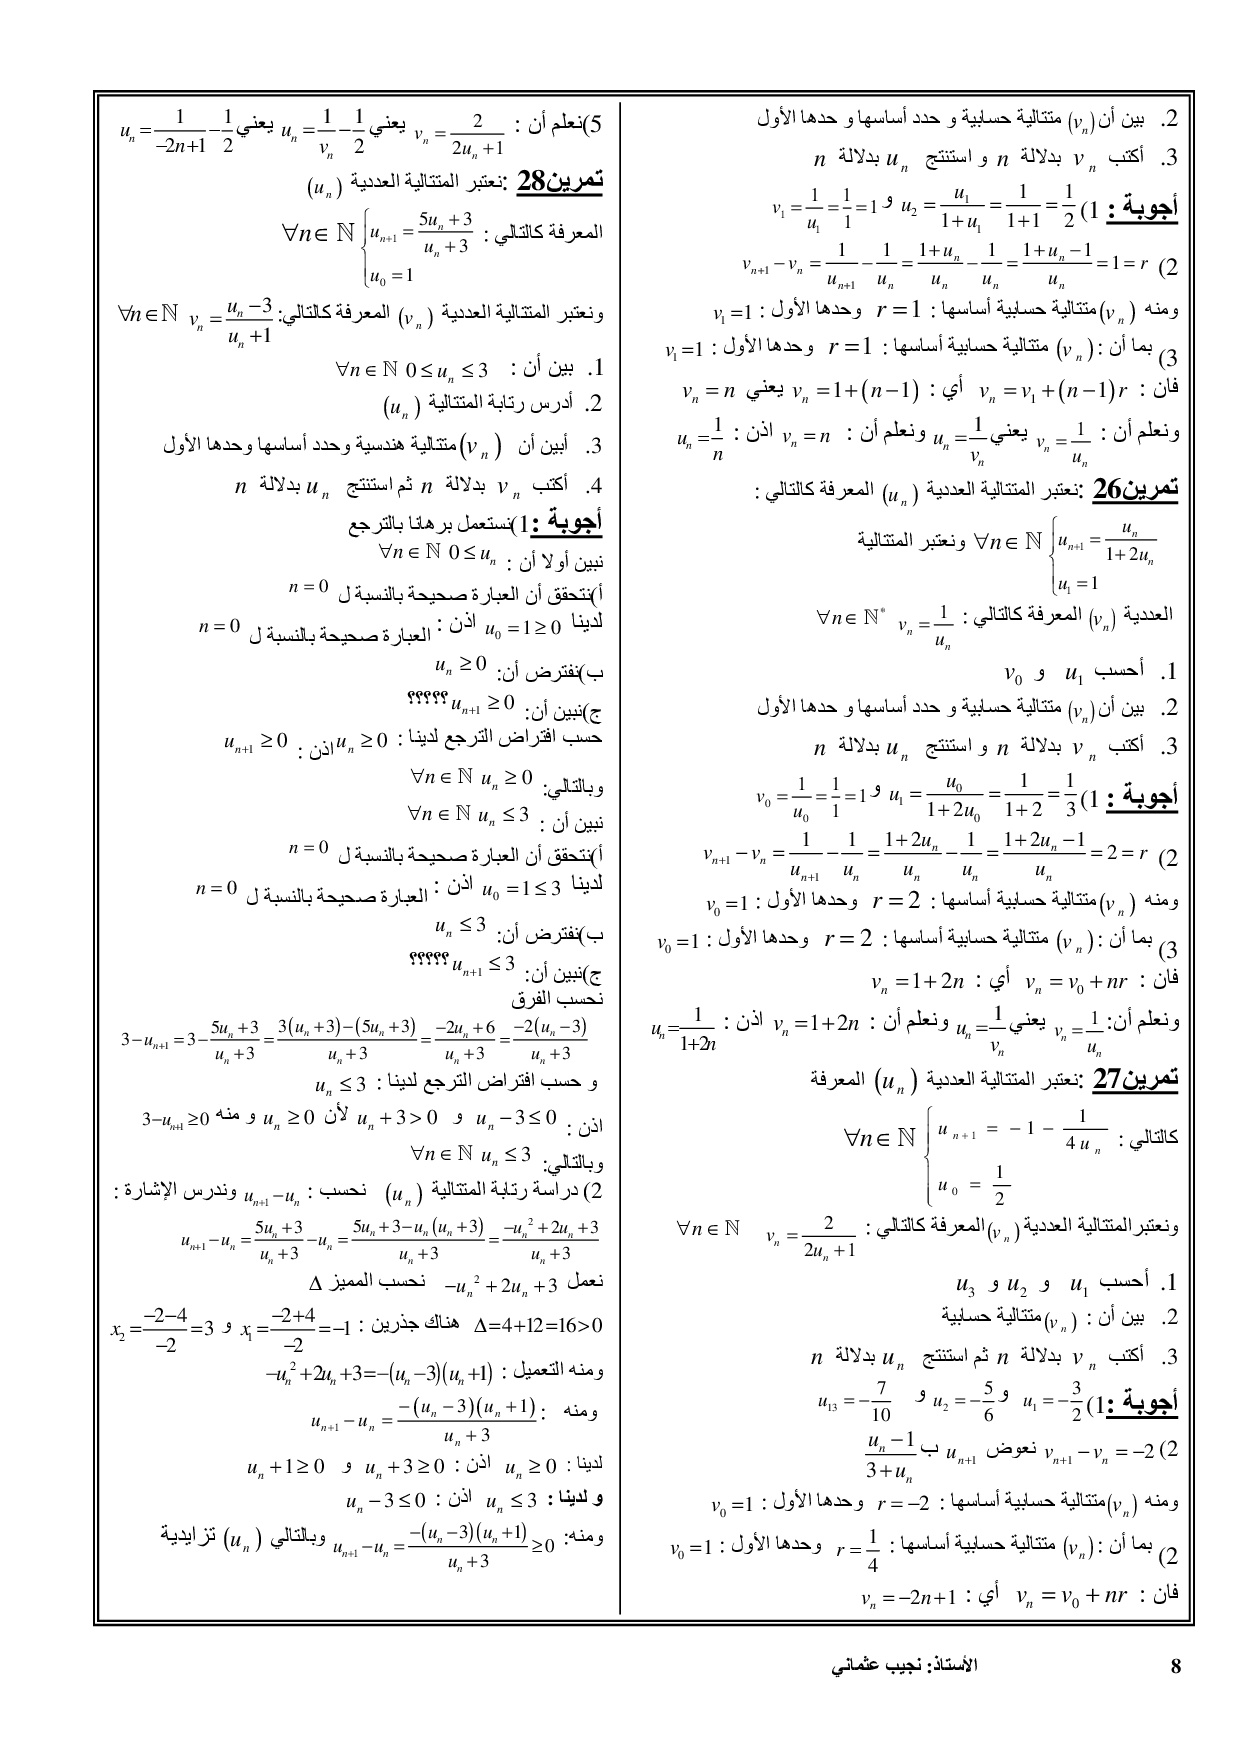 2. بين أن $(v_n)$ متتالية حسابية و حدد أساسها و حدها الأول
3. أكتب $v_n$ بدلالة $n$ و استنتج $u_n$ بدلالة $n$
أجوبة : 1) $u_2=\frac{u_1}{1+u_1}=\frac{1}{1+1}=\frac{1}{2}$ و $v_1=\frac{1}{u_1}=\frac{1}{1}=1$
2) $v_{n+1}-v_n=\frac{1}{u_{n+1}}-\frac{1}{u_n}=\frac{1+u_n}{u_n}-\frac{1}{u_n}=\frac{1+u_n-1}{u_n}=1=r$
ومنه $(v_n)$ متتالية حسابية أساسها : $r=1$ وحدها الأول : $v_1=1$
3) بما أن : $(v_n)$ متتالية حسابية أساسها : $r=1$ وحدها الأول : $v_1=1$
فان : $v_n=v_1+(n-1)r$ أي : $v_n=1+(n-1)$ يعني $v_n=n$
ونعلم أن : $v_n=\frac{1}{u_n}$ يعني $u_n=\frac{1}{v_n}$ ونعلم أن : $v_n=n$ اذن : $u_n=\frac{1}{n}$
تمرين26 :نعتبر المتتالية العددية $(u_n)$ المعرفة كالتالي :
$\forall n\in\mathbb{N}$ $\begin{cases}u_{n+1}=\frac{u_n}{1+2u_n}\\u_1=1\end{cases}$ ونعتبر المتتالية
العددية $(v_n)$ المعرفة كالتالي : $v_n=\frac{1}{u_n}$ $\forall n\in\mathbb{N}^*$
1. أحسب $u_1$ و $v_0$
2. بين أن $(v_n)$ متتالية حسابية و حدد أساسها و حدها الأول
3. أكتب $v_n$ بدلالة $n$ و استنتج $u_n$ بدلالة $n$
أجوبة : 1) $u_1=\frac{u_0}{1+2u_0}=\frac{1}{1+2}=\frac{1}{3}$ و $v_0=\frac{1}{u_0}=\frac{1}{1}=1$
2) $v_{n+1}-v_n=\frac{1}{u_{n+1}}-\frac{1}{u_n}=\frac{1+2u_n}{u_n}-\frac{1}{u_n}=\frac{1+2u_n-1}{u_n}=2=r$
ومنه $(v_n)$ متتالية حسابية أساسها : $r=2$ وحدها الأول : $v_0=1$
3) بما أن : $(v_n)$ متتالية حسابية أساسها : $r=2$ وحدها الأول : $v_0=1$
فان : $v_n=v_0+nr$ أي : $v_n=1+2n$
ونعلم أن: $v_n=\frac{1}{u_n}$ يعني $u_n=\frac{1}{v_n}$ ونعلم أن : $v_n=1+2n$ اذن : $u_n=\frac{1}{1+2n}$
تمرين27 :نعتبر المتتالية العددية $(u_n)$ المعرفة
كالتالي : $\begin{cases}u_{n+1}=-1-\frac{1}{4u_n}\\u_0=\frac{1}{2}\end{cases}$ $\forall n\in\mathbb{N}$
ونعتبرالمتتالية العددية $(v_n)$ المعرفة كالتالي : $v_n=\frac{2}{2u_n+1}$ $\forall n\in\mathbb{N}$
1. أحسب $u_1$ و $u_2$ و $u_3$
2. بين أن : $(v_n)$ متتالية حسابية
3. أكتب $v_n$ بدلالة $n$ ثم استنتج $u_n$ بدلالة $n$
أجوبة :1) $u_1=-\frac{3}{2}$ و $u_2=-\frac{5}{6}$ و $u_{13}=-\frac{7}{10}$
2) $v_{n+1}-v_n=-2$ نعوض $u_{n+1}$ ب $\frac{u_n-1}{3+u_n}$
ومنه $(v_n)$ متتالية حسابية أساسها : $r=-2$ وحدها الأول : $v_0=1$
2) بما أن : $(v_n)$ متتالية حسابية أساسها : $r=\frac{1}{4}$ وحدها الأول : $v_0=1$
فان : $v_n=v_0+nr$ أي : $v_n=-2n+1$
5)نعلم أن : $v_n=\frac{2}{2u_n+1}$ يعني $u_n=\frac{1}{v_n}-\frac{1}{2}$ يعني $u_n=\frac{1}{-2n+1}-\frac{1}{2}$
تمرين28 :نعتبر المتتالية العددية $(u_n)$
المعرفة كالتالي : $\begin{cases}u_{n+1}=\frac{5u_n+3}{u_n+3}\\u_0=1\end{cases}$ $\forall n\in\mathbb{N}$
ونعتبر المتتالية العددية $(v_n)$ المعرفة كالتالي: $v_n=\frac{u_n-3}{u_n+1}$ $\forall n\in\mathbb{N}$
1. بين أن : $0\leq u_n\leq 3$ $\forall n\in\mathbb{N}$
2. أدرس رتابة المتتالية $(u_n)$
3. أبين أن $(v_n)$ متتالية هندسية وحدد أساسها وحدها الأول
4. أكتب $v_n$ بدلالة $n$ ثم استنتج $u_n$ بدلالة $n$
أجوبة :1)نستعمل برهانا بالترجع
نبين أولا أن : $0\leq u_n$ $\forall n\in\mathbb{N}$
أ)نتحقق أن العبارة صحيحة بالنسبة ل $n=0$
لدينا $u_0=1\geq 0$ اذن : العبارة صحيحة بالنسبة ل $n=0$
ب)نفترض أن: $u_n\geq 0$
ج)نبين أن: $u_{n+1}\geq 0$ ؟؟؟؟؟
حسب افتراض الترجع لدينا : $u_n\geq 0$ اذن : $u_{n+1}\geq 0$
وبالتالي: $\forall n\in\mathbb{N}$ $u_n\geq 0$
نبين أن : $\forall n\in\mathbb{N}$ $u_n\leq 3$
أ)نتحقق أن العبارة صحيحة بالنسبة ل $n=0$
لدينا $u_0=1\leq 3$ اذن : العبارة صحيحة بالنسبة ل $n=0$
ب)نفترض أن: $u_n\leq 3$
ج)نبين أن: $u_{n+1}\leq 3$ ؟؟؟؟؟
نحسب الفرق
$3-u_{n+1}=3-\frac{5u_n+3}{u_n+3}=\frac{3(u_n+3)-(5u_n+3)}{u_n+3}=\frac{-2u_n+6}{u_n+3}=\frac{-2(u_n-3)}{u_n+3}$
و حسب افتراض الترجع لدينا : $u_n\leq 3$
اذن : $u_n-3\leq 0$ و $u_n+3>0$ لأن $u_n\geq 0$ و منه $3-u_{n+1}\geq 0$
وبالتالي: $\forall n\in\mathbb{N}$ $u_n\leq 3$
2) دراسة رتابة المتتالية $(u_n)$ نحسب : $u_{n+1}-u_n$ وندرس الإشارة :
$u_{n+1}-u_n=\frac{5u_n+3}{u_n+3}-u_n=\frac{5u_n+3-u_n(u_n+3)}{u_n+3}=\frac{-u_n^2+2u_n+3}{u_n+3}$
نعمل $-u_n^2+2u_n+3$ نحسب المميز $\Delta$
$\Delta=4+12=16>0$ هناك جذرين : $x_1=\frac{-2+4}{-2}=-1$ و $x_2=\frac{-2-4}{-2}=3$
ومنه التعميل : $-u_n^2+2u_n+3=-(u_n-3)(u_n+1)$
ومنه : $u_{n+1}-u_n=\frac{-(u_n-3)(u_n+1)}{u_n+3}$
لدينا : $u_n\geq 0$ اذن : $u_n+3\geq 0$ و $u_n+1\geq 0$
و لدينا : $u_n\leq 3$ اذن : $u_n-3\leq 0$
ومنه: $u_{n+1}-u_n=\frac{-(u_n-3)(u_n+1)}{u_n+3}\geq 0$ وبالتالي $(u_n)$ تزايدية
الأستاذ: نجيب عثماني
8